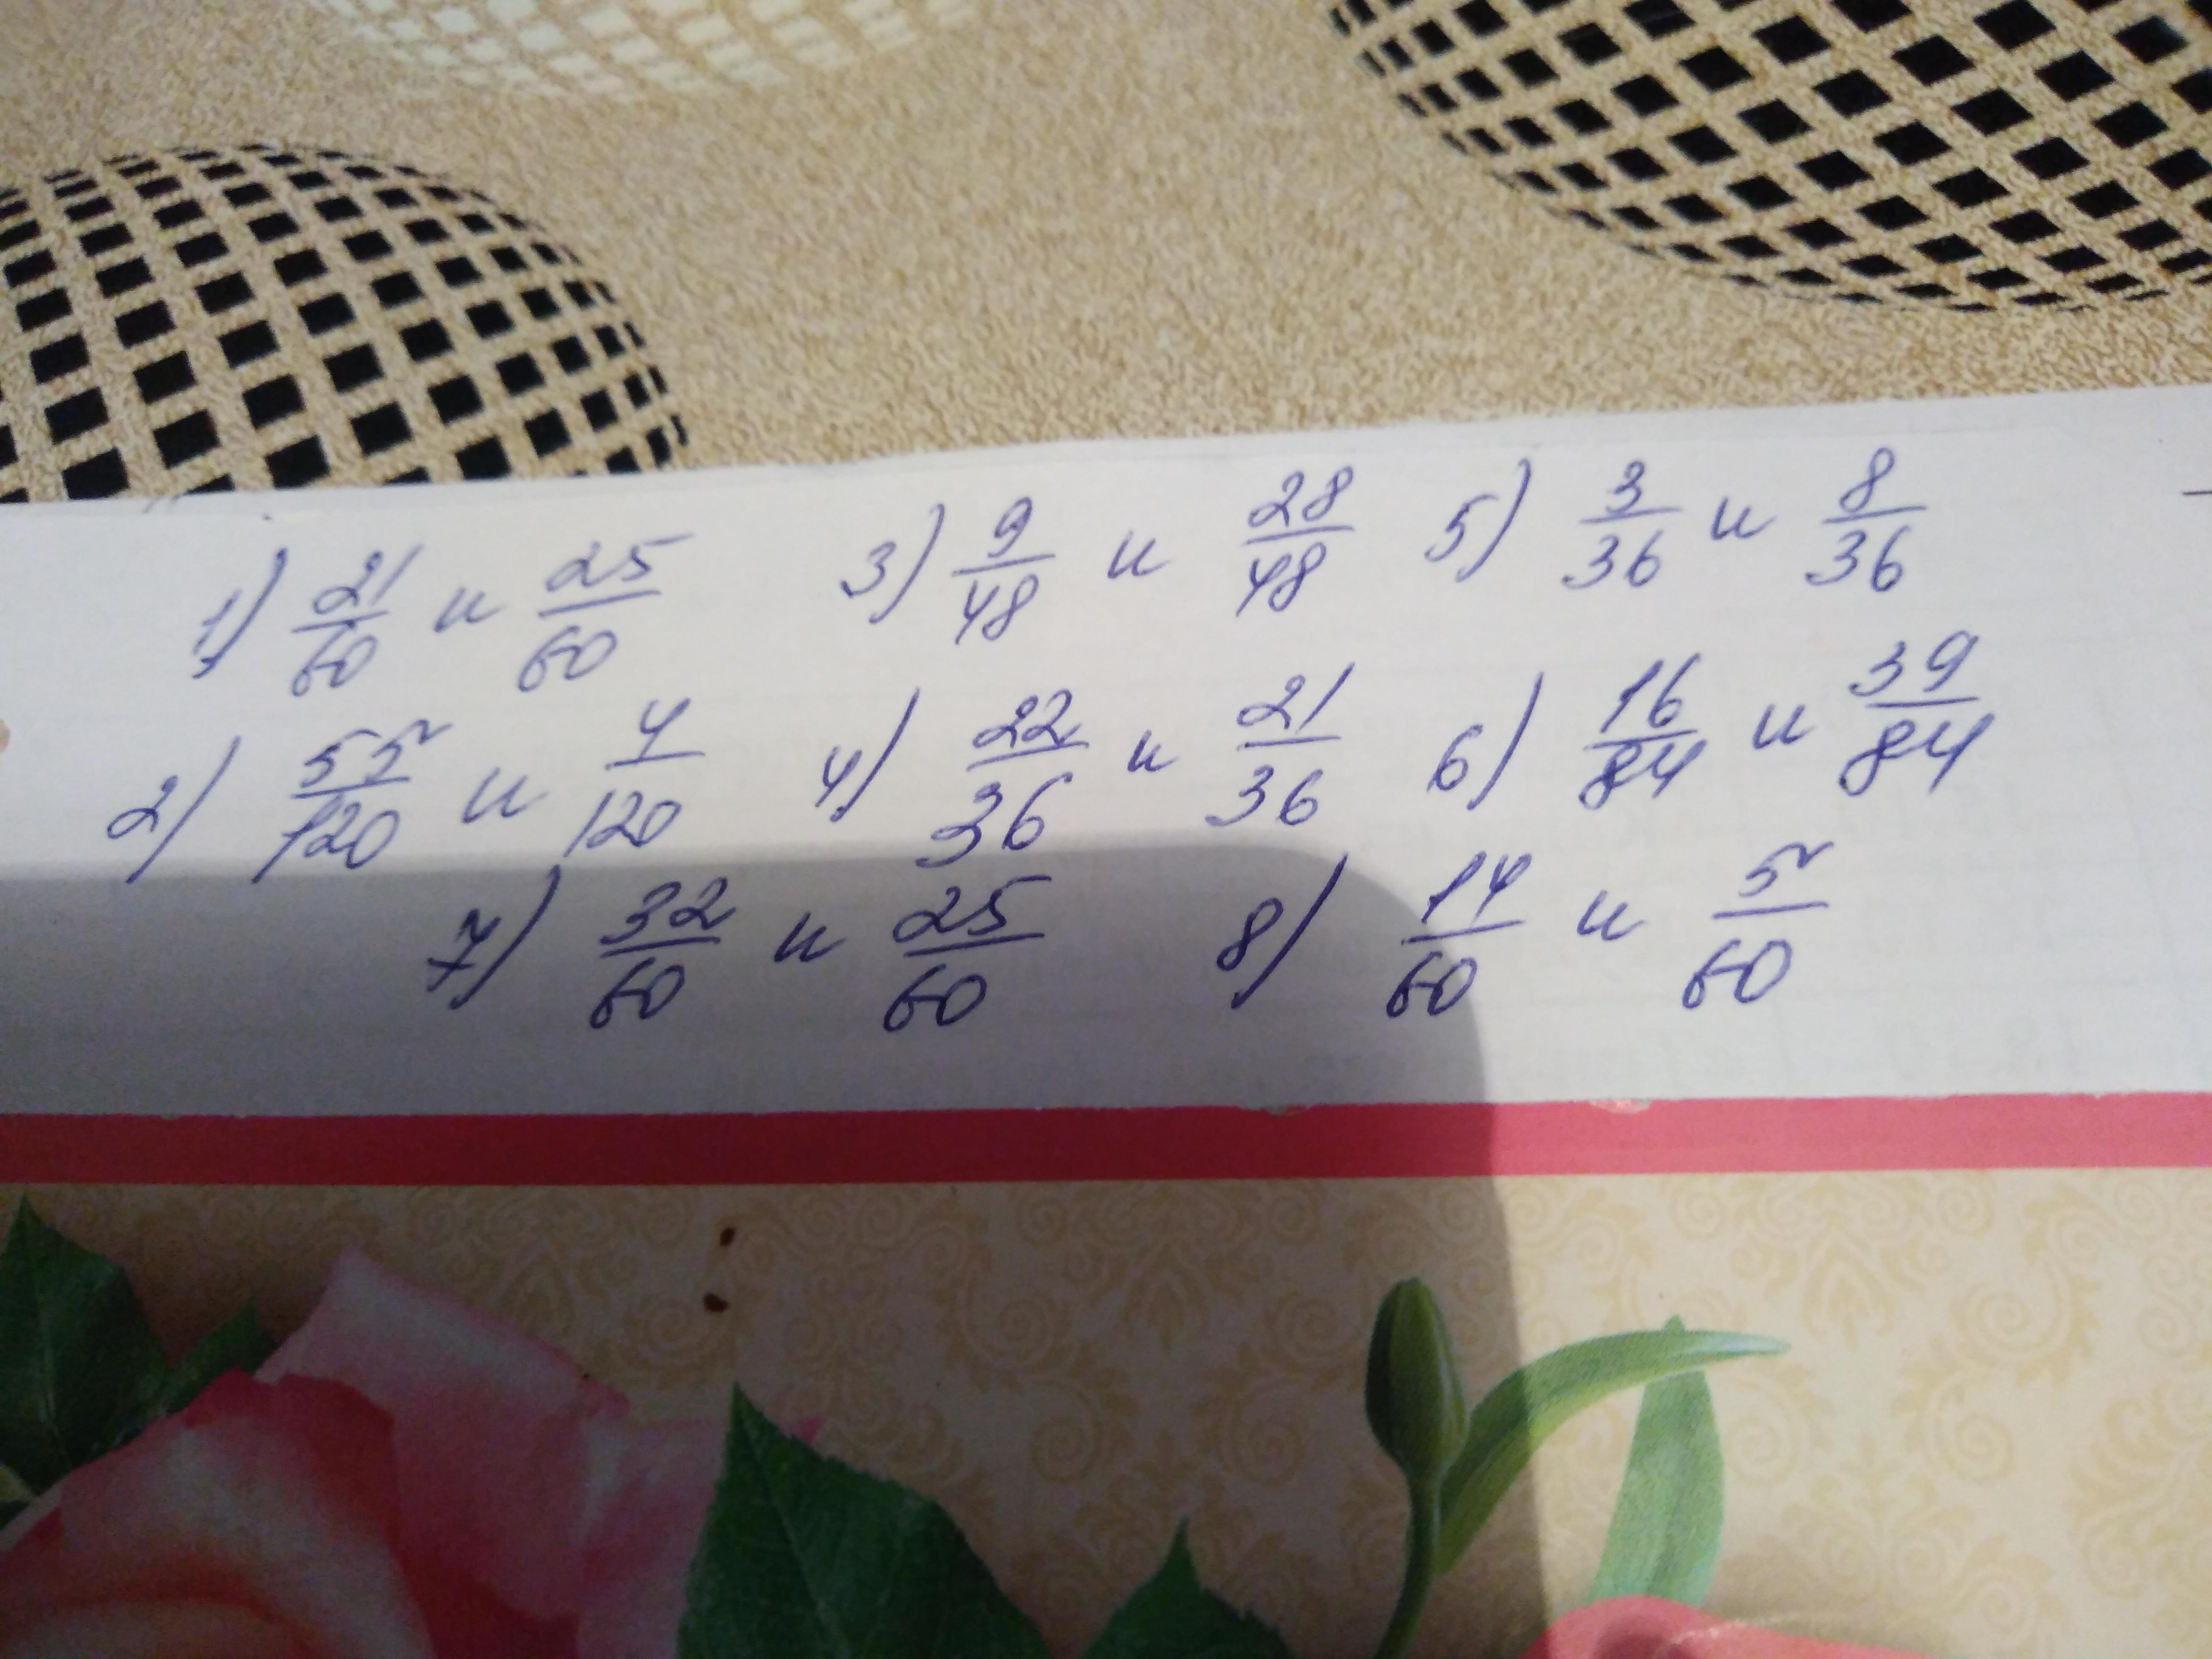 1) 21/60 и 25/60 3) 9/48 и 28/48 5) 3/36 и 8/36
2) 55/120 и 4/120 4) 22/36 и 21/36 6) 16/84 и 39/84
7) 32/60 и 25/60 8) 14/60 и 5/60